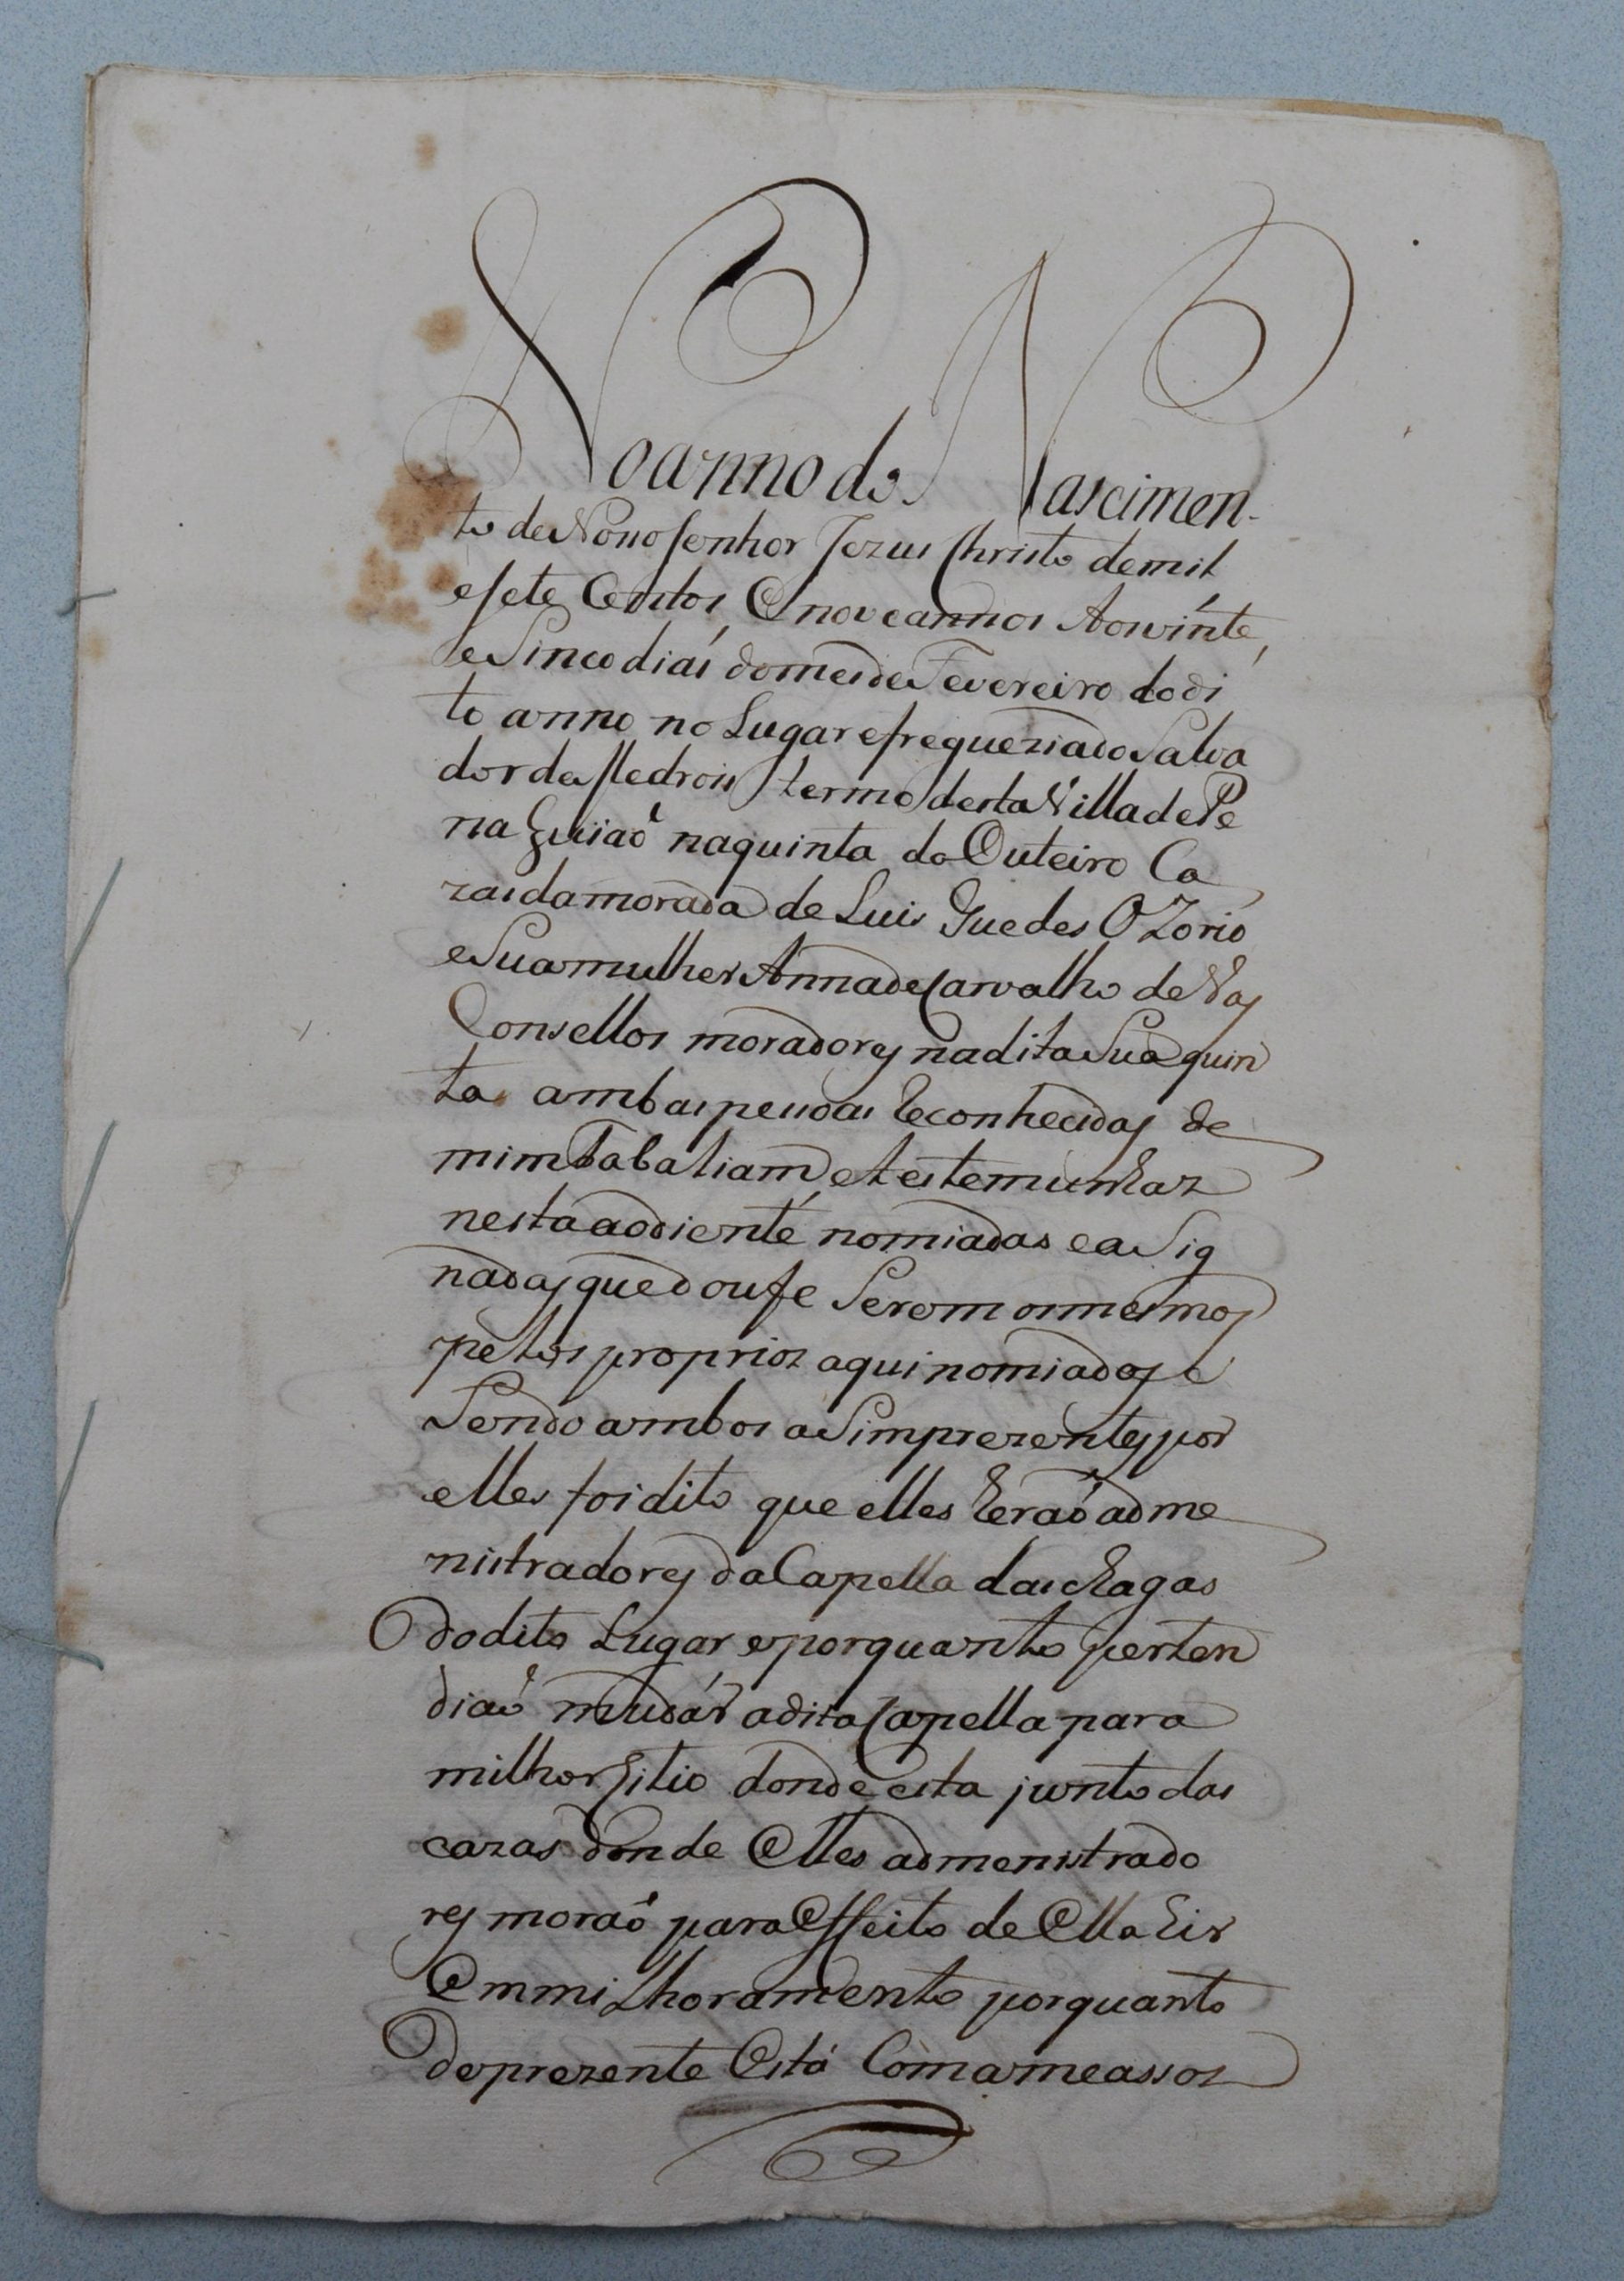 No anno do Nascimen-
to de Nosso senhor Jezus Christo de mil
e sete Centos, E nove annos Aos vinte,
e Sinco dias do mes de Fevereiro do di
to anno no Lugar e freguezia do Salva
dor de Medrois termo desta Villa de Pe
na Guiaõ na quinta do Outeiro Ca
zas da morada de Luis Guedes OZorio
e Sua mulher Anna de Carvalho de Vas
Consellos moradores na dita Sua quin
ta ambas pessoas Reconhecidas de
mim Tabaliam e testemunhaz
nesta ao diente nomiadas e aSig
nadas que dou fe Serem os mesmos
pelos proprioz aqui nomiados e
Sendo ambos aSim prezentes por
elles foi dito que elles heraõ adme
nistradores da Capella das chagas
do dito Lugar e porquanto perten
diaõ mudar a dita Capella para
milhor sitio donde esta junto das
cazas donde Elles admenistrado
res moraõ para Effeito de Ella hir
Em milhoramento porquanto
de prezente Está Com ameassoz